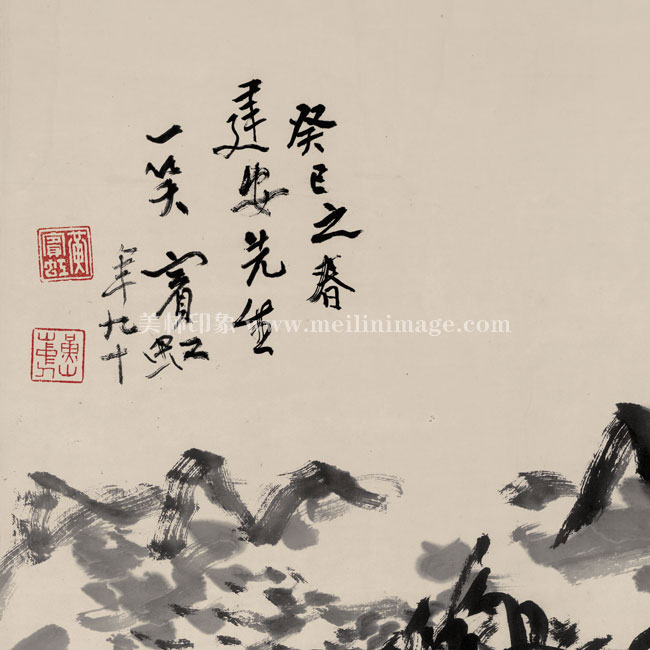 癸巳之春
建安先生
一笑 賓虹
年九十
黃賓虹
美林印象 www.meilinimage.com